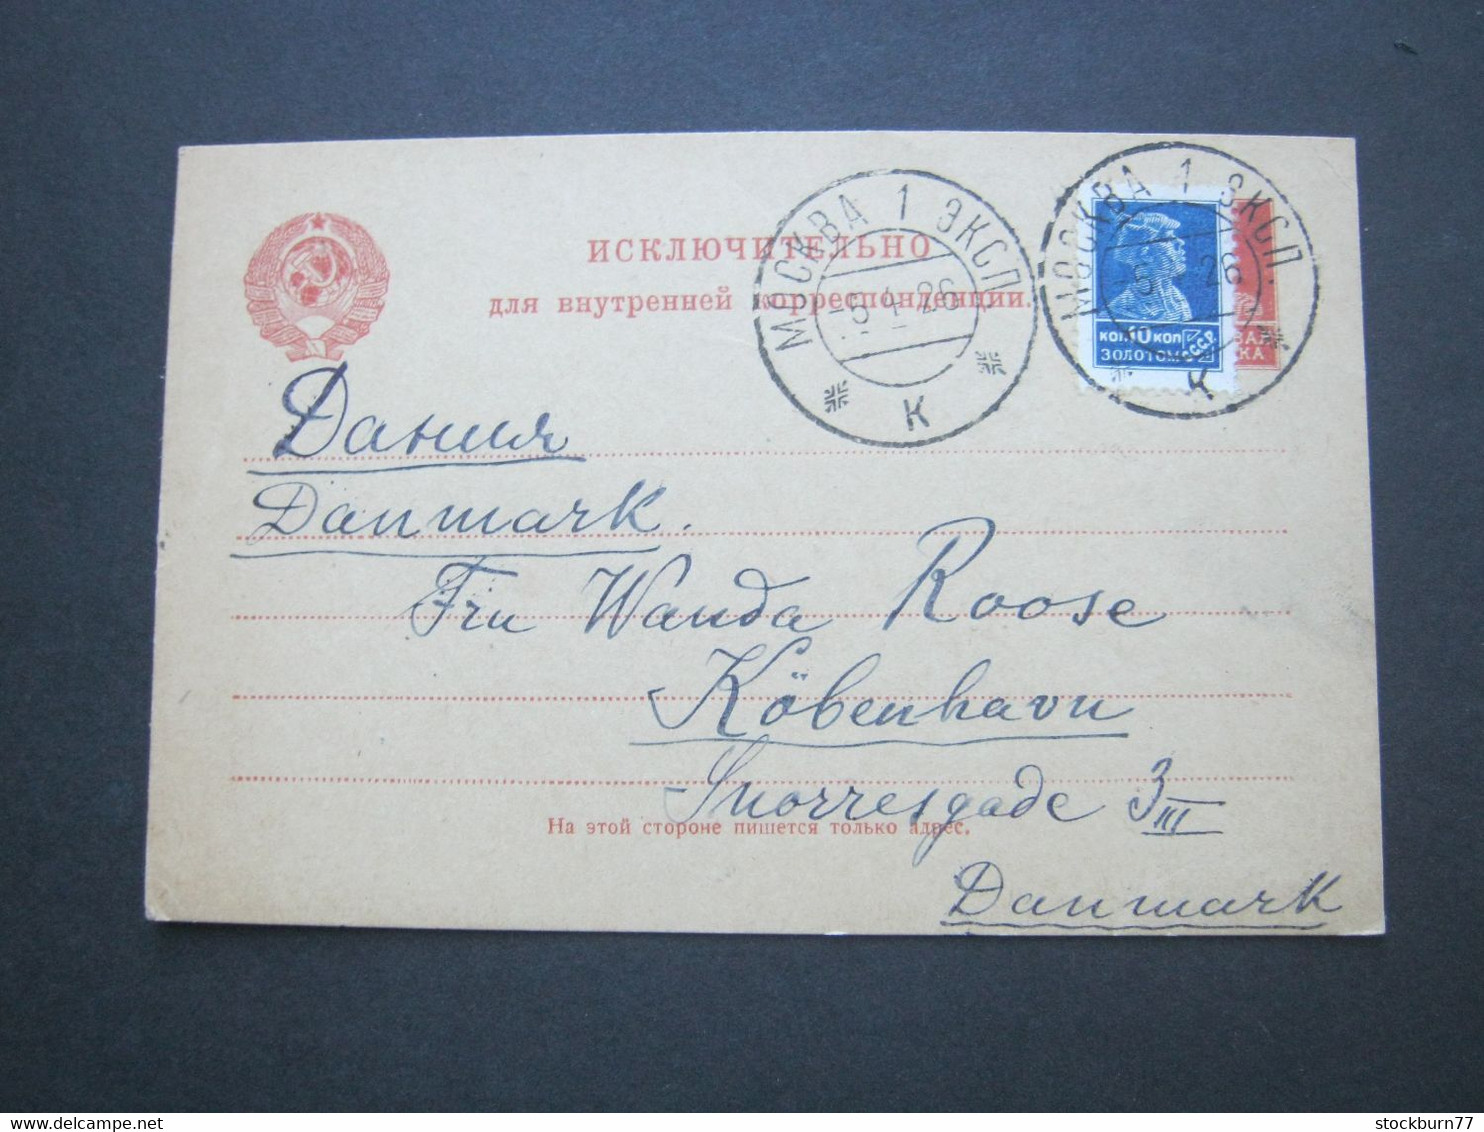 ИСКЛЮЧИТЕЛЬНО
для внутренней корреспонденции.
МОСКВА 1 ЭКСП.
-5.4.26
К
МОСКВА 1 ЭКСП.
-5. 26
К
КОП.10 КОП
ЗОЛОТОМ С.С.С.Р.
ВАЛ
КА
Дания
Danmark.
Fru Wanda Roose
Köbenhavn
Snorresgade 3 III
На этой стороне пишется только адрес.
Danmark
stockburn77